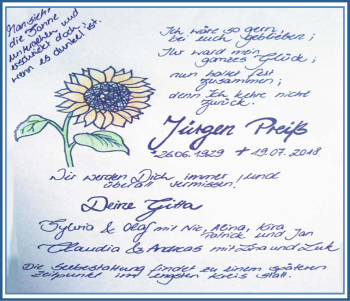 Man sieht
die Sonne
untergehen und
erschrickt doch
wenn es dunkel ist.
Ich wäre so gern
bei euch geblieben;
Ihr ward mein
ganzes Glück;
nun haltet fest
zusammen;
denn Ich kehre nicht
zurück.
Jürgen Preiß
*26.06.1929 +19.07.2018
Wir werden Dich immer und
überall vermissen!
Deine Gitta
Sylvia & Olaf mit Nic, Alina, Kira
Patrick und Jan
Claudia & Andreas mit Lina und Luk
Die Seebestattung findet zu einem späteren
Zeitpunkt im engsten Kreis statt.